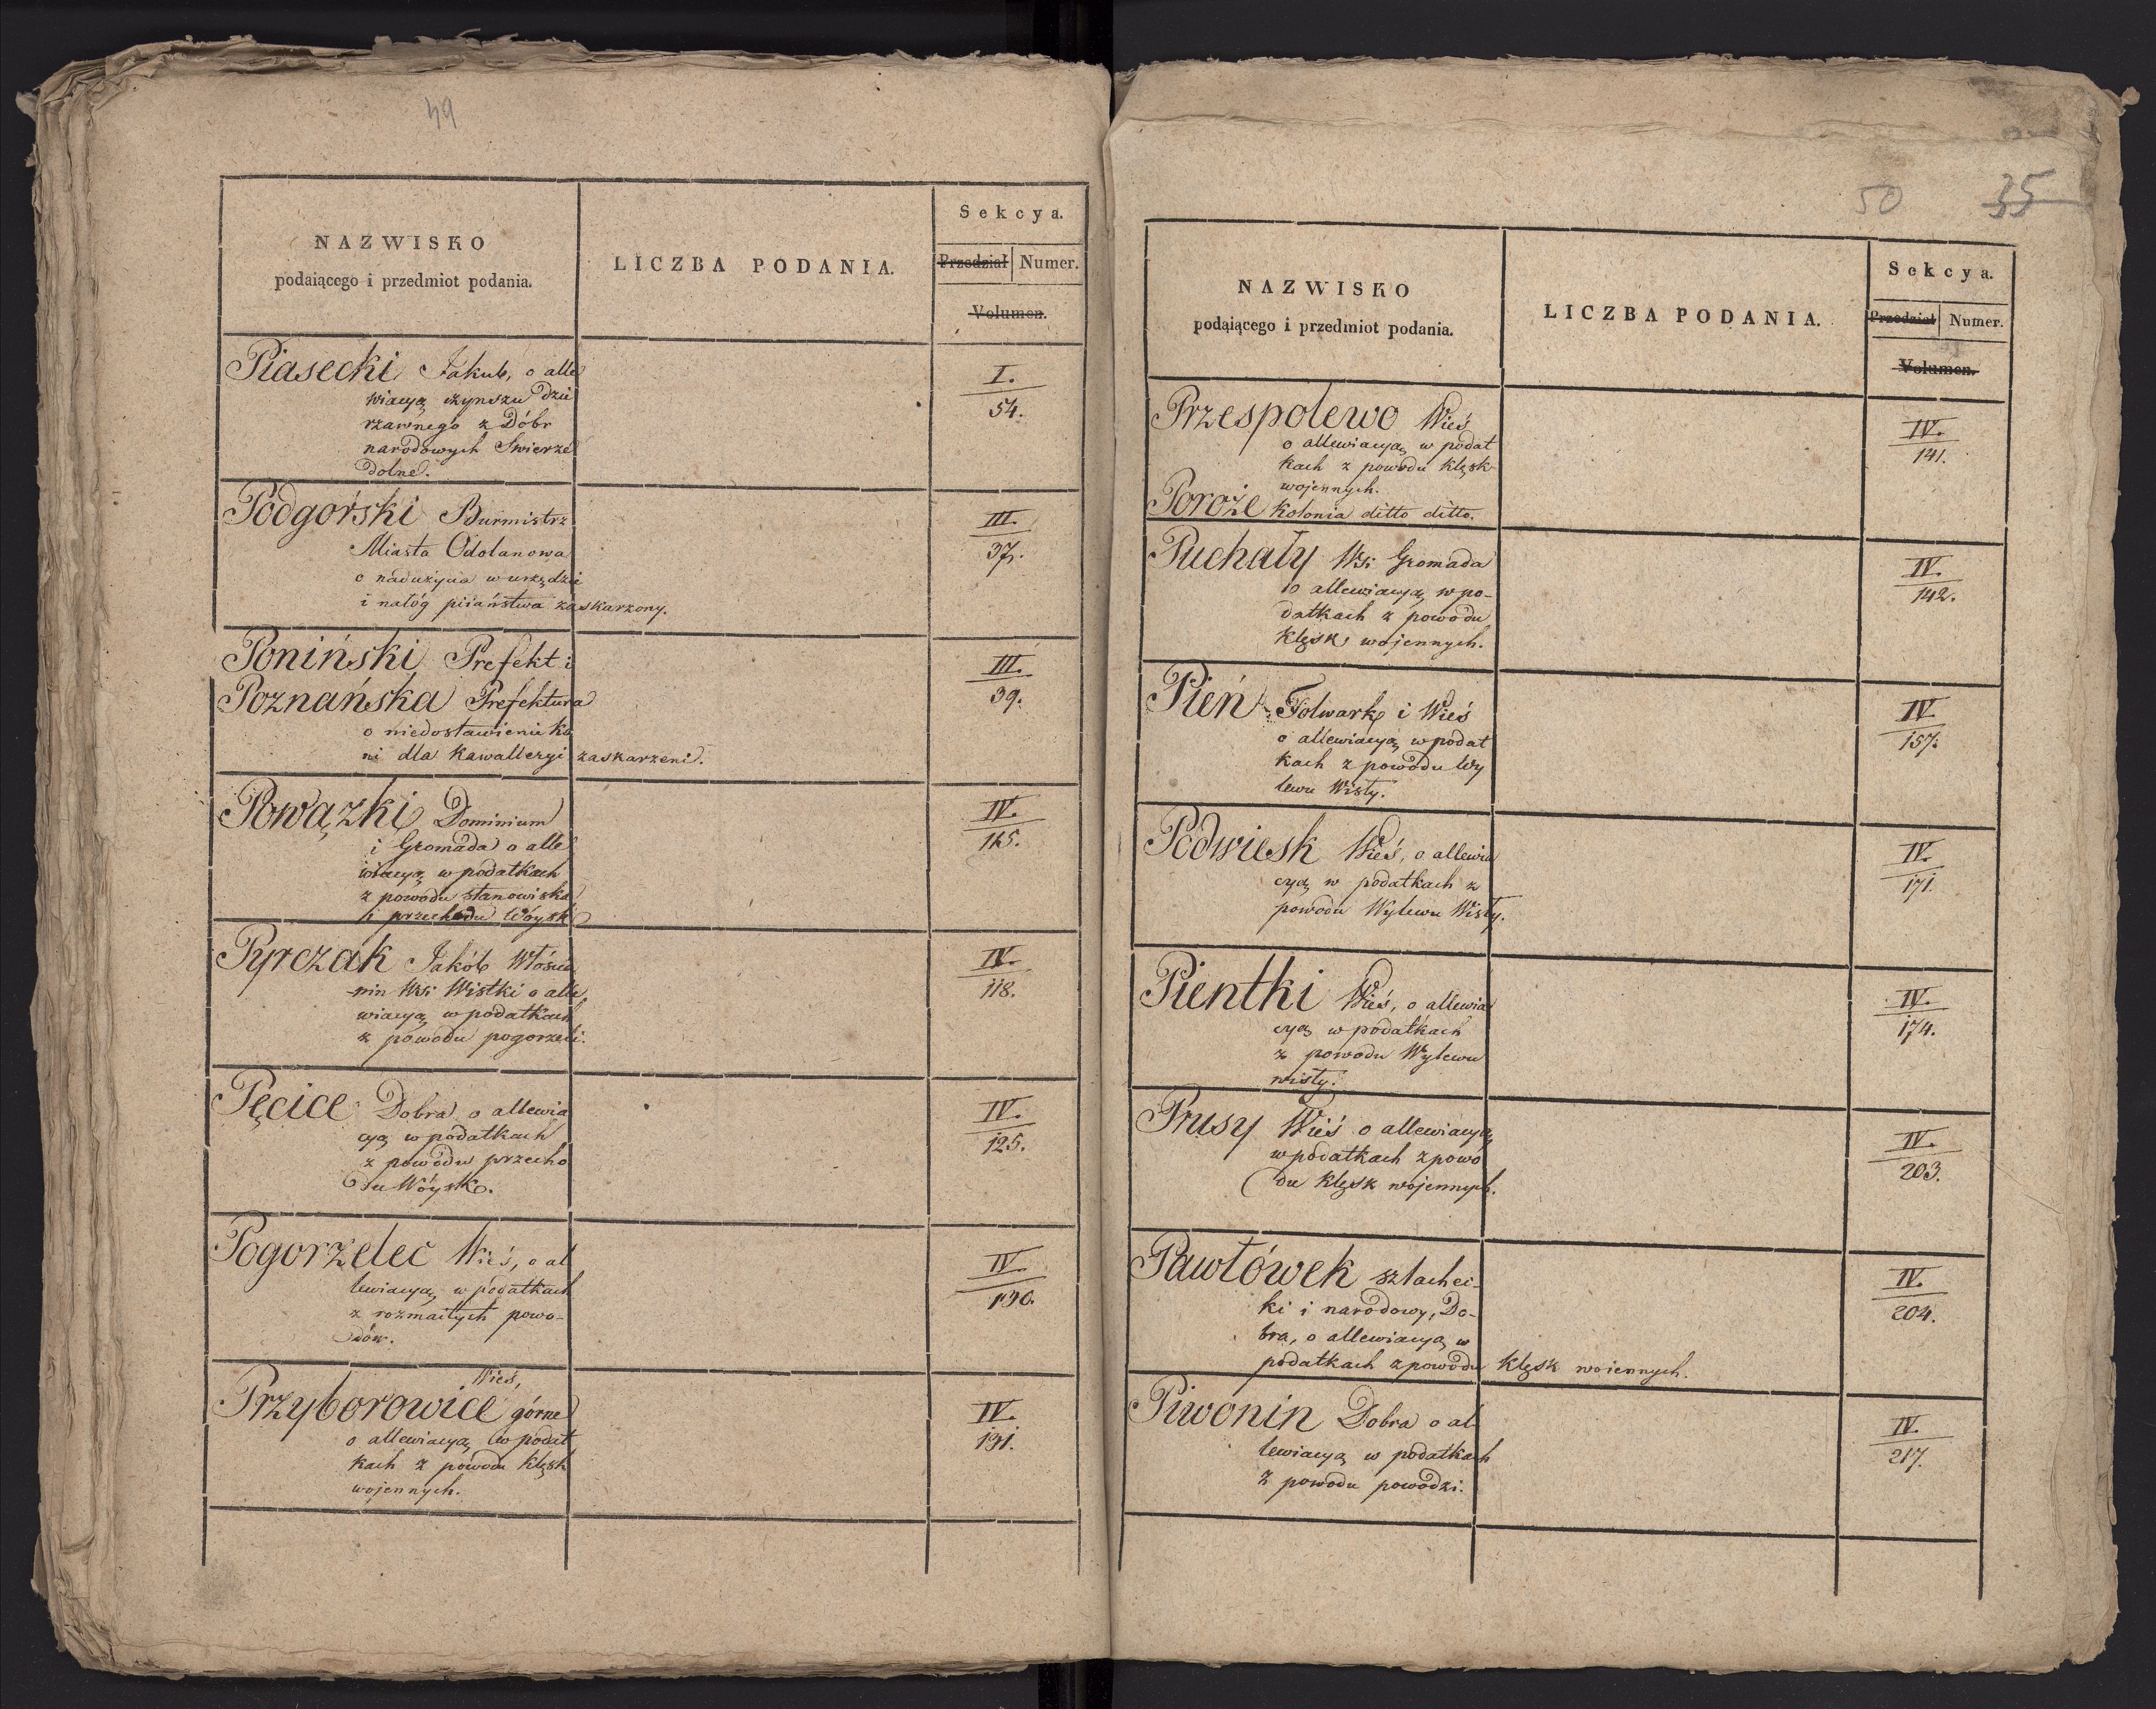 49
NAZWISKO
podaiącego i przedmiot podania.
LICZBA PODANIA.
Sekcya.
Przedział Numer.
Volumen.
Piasecki Jakub, o alle
wiacyą czynszu dzie
rzawnego z Dóbr
narodowych Swierze
dolne.
I.
54.
Podgorski Burmistrz
Miasta Odolanowa
o nadużycia w urzędzie
i nałóg piiaństwa zaskarzony.
III.
37.
Poniński Prefekt i
Poznańska Prefektura
o niedostawienie ko
ni dla Kawalleryi zaskarzeni.
III.
39.
Powązki Dominium
i Gromada o alle
wiacyą w podatkach
z powodu stanowiska
i przechodu Woysk
IV.
Pyrczak Jakób Włościa
nin Wsi Wistki o alle
wiacyą w podatkach
z powodu pogorzeli.
IV.
118.
Pęcice Dobra o allewia
cyą w podatkach
z powodu przecho
du Wóysk.
IV.
125.
Pogorzelec Wieś, o al
lewiacyą w podatkach
z rozmaitych powo-
dów.
IV.
190.
Wieś,
Przyborowice górne
o allewiacyą w podat
kach z powodu klęsk
wojennych.
IV.
191.
50 35
NAZWISKO
podaiącego i przedmiot podania.
LICZBA PODANIA.
Sekcya.
Przedział Numer.
Volumen.
Przespolewo Wieś
o allewiacyą w podat
kach z powodu klęsk
wojennych.
Poroże Kolonia ditto ditto.
IV.
141.
Puchały Wsi Gromada
o allewiacyą w po-
datkach z powodu
klęsk wojennych.
IV.
142.
Pień Folwark i Wieś
o allewiacyą w podat
kach z powodu Wy
lewu Wisły.
IV.
157.
Podwiesk Wieś, o allewia
cyą w podatkach z
powodu Wylewu Wisły.
IV.
171.
Pientki Wieś, o allewia
cyą w podatkach
z powodu Wylewu
wisły.
IV.
174.
Prusy Wieś o allewiacyą
w podatkach z powo
du klęsk wojennych.
IV.
203.
Pawłówek szlachec
ki i narodowy, Do-
bra, o allewiacyą w
podatkach z powodu klęsk woiennych.
IV.
204.
Piwonin Dobra o al
lewiacyą w podatkach
z powodu powodzi.
IV.
217.